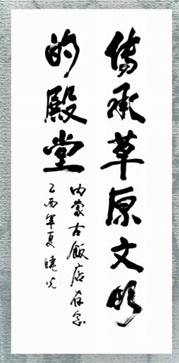 传承草原文明
的殿堂
内蒙古飯店存念
乙酉年夏 曉光